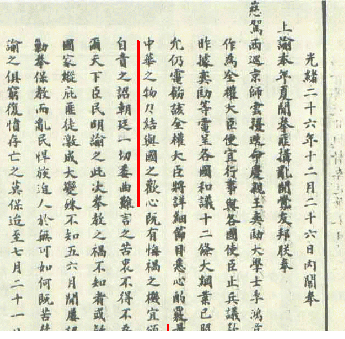 光緒二十六年十二月二十六日內閣奉
上諭本年夏間拳匪搆亂開釁友邦朕奉
慈駕西巡京師雲擾迭命慶親王奕劻大學士李鴻
作為全權大臣便宜行事與各國使臣止兵議
昨據奕劻等電呈各國和議十二條大綱業已照
允仍電飭該全權大臣將詳細節目悉心酌覈量
中華之物力結與國之歡心既有悔禍之機宜頒
自責之詔朝廷一切委曲難言之苦衷不得不
爾天下臣民明諭之此次拳教之禍不知者或疑
國家縱庇匪徒激成大變殊不知五六月間屢
勦拳保教而亂民悍族迫人於無可如何既苦
諭之俱窮復憤存亡之莫保迨至七月二十一